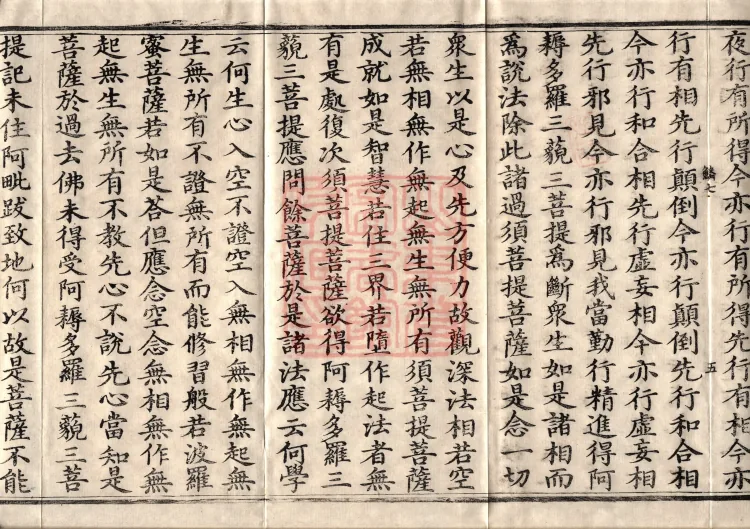 夜行有所得今亦行有所得先行有相今亦
行有相先行顛倒今亦行顛倒先行和合相
七
五
今亦行和合相先行虛妄相今亦行虛妄相
先行邪見今亦行邪見我當勤行精進得阿
耨多羅三藐三菩提爲斷衆生如是諸相而
爲說法除此諸過須菩提菩薩如是念一切
衆生以是心及先方便力故觀深法相若空
若無相無作無起無生無所有須菩提菩薩
成就如是智慧若住三界若墮作起法者無
有是處復次須菩提菩薩欲得阿耨多羅三
藐三菩提應問餘菩薩於是諸法應云何學
云何生心入空不證空入無相無作無起無
生無所有不證無所有而能修習般若波羅
蜜菩薩若如是答但應念空念無相無作無
起無生無所有不教先心不說先心當知是
菩薩於過去佛未得受阿耨多羅三藐三菩
提記未住阿毗跋致地何以故是菩薩不能